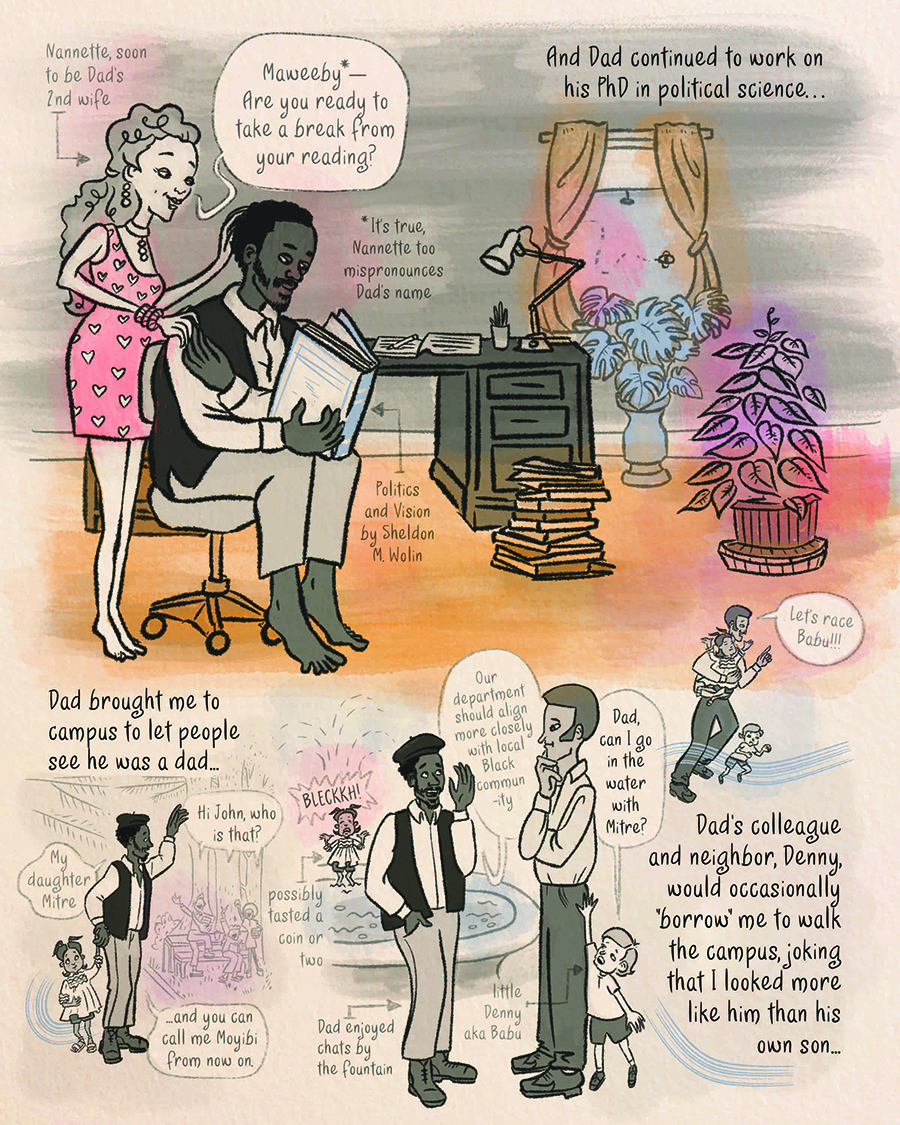 Nannette, soon
to be Dad's
2nd wife
Maweeby*—
Are you ready to
take a break from
your reading?
And Dad continued to work on
his PhD in political science...
*It's true,
Nannette too
mispronounces
Dad's name
Politics
and Vision
by Sheldon
M. Wolin
Let's race
Babu!!!
Dad brought me to
campus to let people
see he was a dad...
Hi John, who
is that?
My
daughter
Mitre
...and you can
call me Moyibi
from now on.
BLECKKH!
possibly
tasted a
coin or
two
Our
department
should align
more closely
with local
Black
commun
-ity
Dad,
can I go
in the
water
with
Mitre?
Dad enjoyed
chats by
the fountain
little
Denny
aka Babu
Dad's colleague
and neighbor, Denny,
would occasionally
"borrow" me to walk
the campus, joking
that I looked more
like him than his
own son...